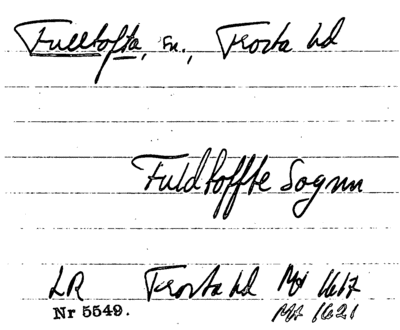 Fulltofta, sn., Frosta hd
Fuldtoffte Sognn
LR Frosta hd Mt 1617
Nr 5549. Mt 1621